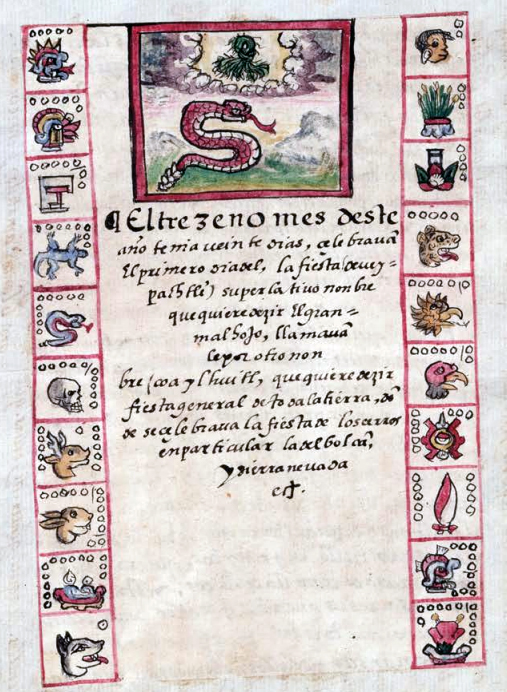 ¶ El trezeno mes deste
año tenia veinte dias, celebravā
El primero dia del, la fiesta (de vey=
pachtli) superlativo nonbre
que quiere dezir El gran=
malhojo, llamavā
le por otro non
bre (coaylhuitl, que quiere dezir
fiesta general de toda la tierra, dō
de se celebrava la fiesta de los cerros
en particular la del bolcā,
y sierra nevada